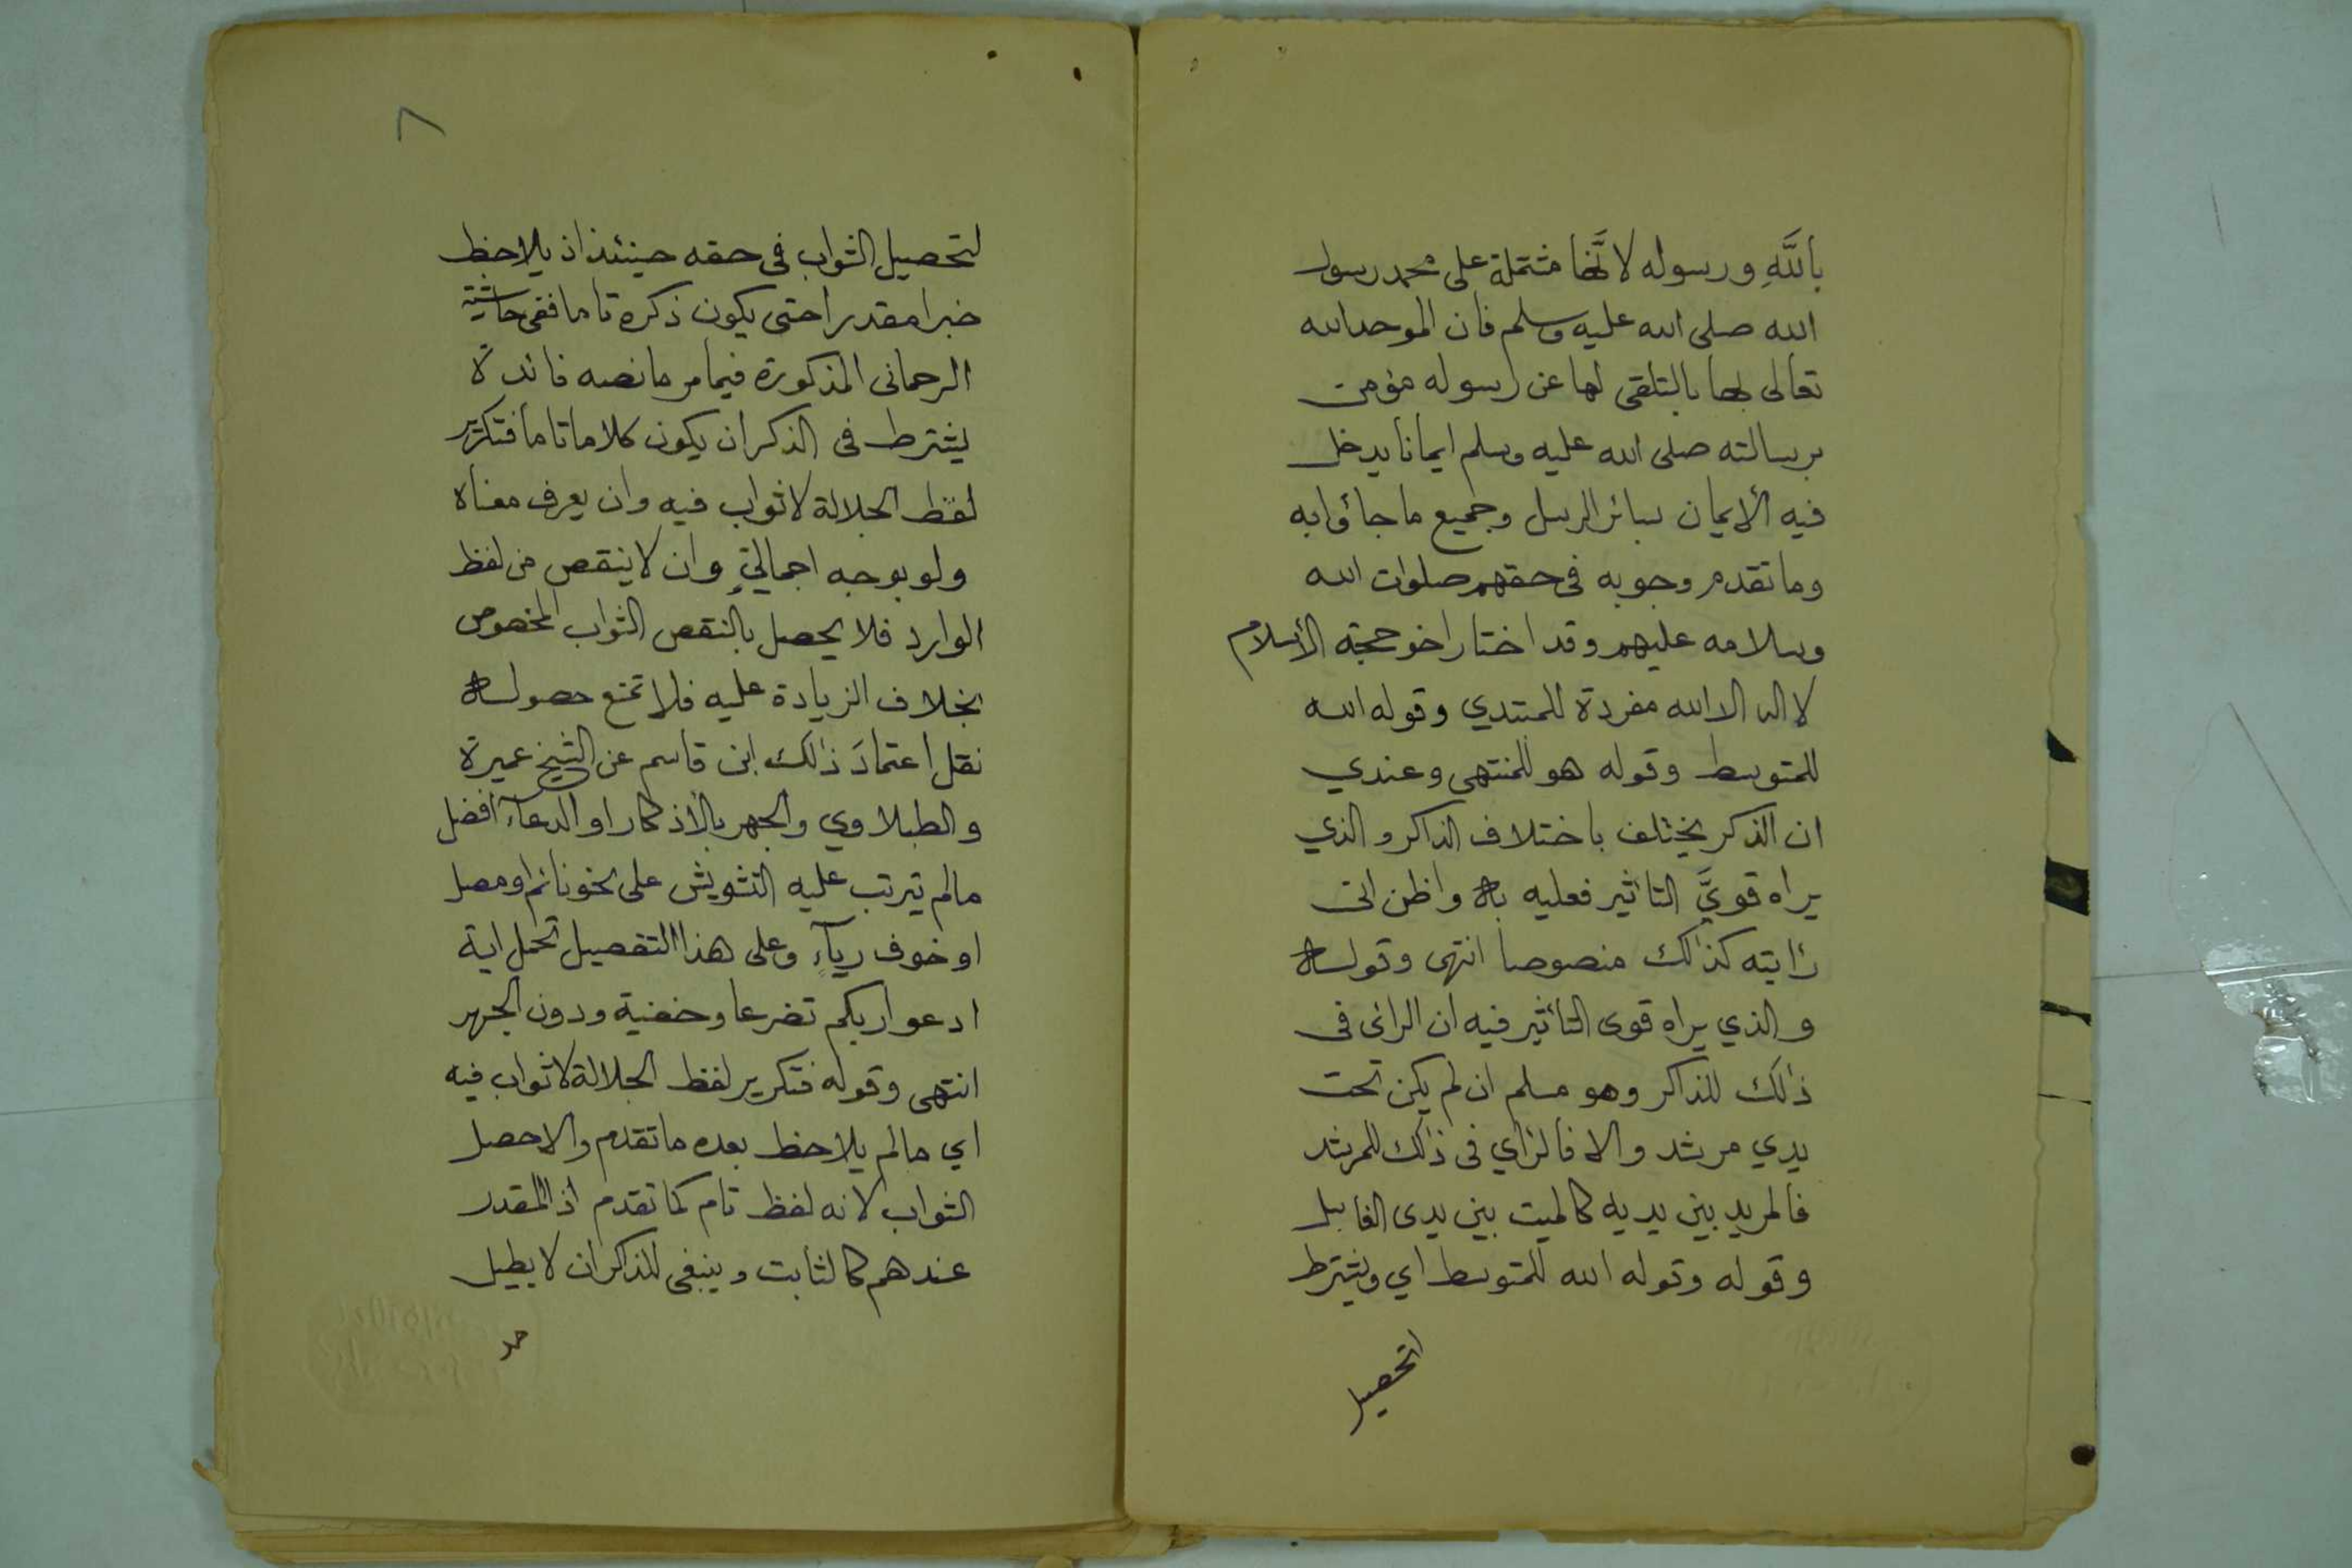 بأللَّهِ ورسوله لانَّها مشتملة على محمد رسول
الله صلى الله عليه وسلم فان الموحد لله
تعالى بها بالتلقى لها عن رسوله مؤمن
برسالته صلى الله عليه وسلم ايمانا يدخل
فيه الأيمان بسائر الرسل وجميع ما جاؤا به
وما تقدم وجوبه فى حقهم صلوات الله
وسلامه عليهم وقد اختار اخو حجة الأسلام
لا اله الا الله مفردة للمبتدي وقوله الله
للمتوسط وقوله هو للمنتهى وعندي
ان الذكر يختلف باختلاف الذاكر والذي
يراه قويَّ التاثير فعليه به واظن انى
رايته كذالك منصوصا انتهى وقوله
والذي يراه قوى التأثير فيه ان الرائى فى
ذالك للذاكر وهو مسلم ان لم يكن تحت
يدي مرشد والا فالراي فى ذالك للمرشد
فالمريد بين يديه كالميت بين يدى الغاسل
وقوله وقوله الله للمتوسط اي ويشترط
لتحصيل
٨
لتحصيل الثواب فى حقه حينئذ اذ يلاحظ
خبرا مقدرا حتى يكون ذكره تاما ففى حاشية
الرحمانى المذكورة فيما مر ما نصه فائدة
يشترط فى الذكر ان يكون كلاما تاما فتكرير
لفظ الجلالة لا ثواب فيه وان يعرف معناه
ولو بوجه اجماليٍّ وان لا ينقص من لفظ
الوارد فلا يحصل بالنقص الثواب المخصوص
بخلاف الزيادة عليه فلا تمنع حصوله
نقل اعتمادَ ذالك ابن قاسم عن الشيخ عميرة
والطبلاوي والجهر بالأذكار او الدعآء افضل
مالم يترتب عليه التشويش على نحو نائم او مصل
او خوف ريآءٍ وعلى هذا التفصيل تحمل اية
ادعوا ربكم تضرعا وخفية ودون الجهر
انتهى وقوله فتكرير لفظ الجلالة لا ثواب فيه
اي مالم يلاحظ بعده ما تقدم والا حصل
الثواب لانه لفظ تام كما تقدم اذ المقدر
عندهم كالثابت وينبغى للذاكر ان لا يطيل